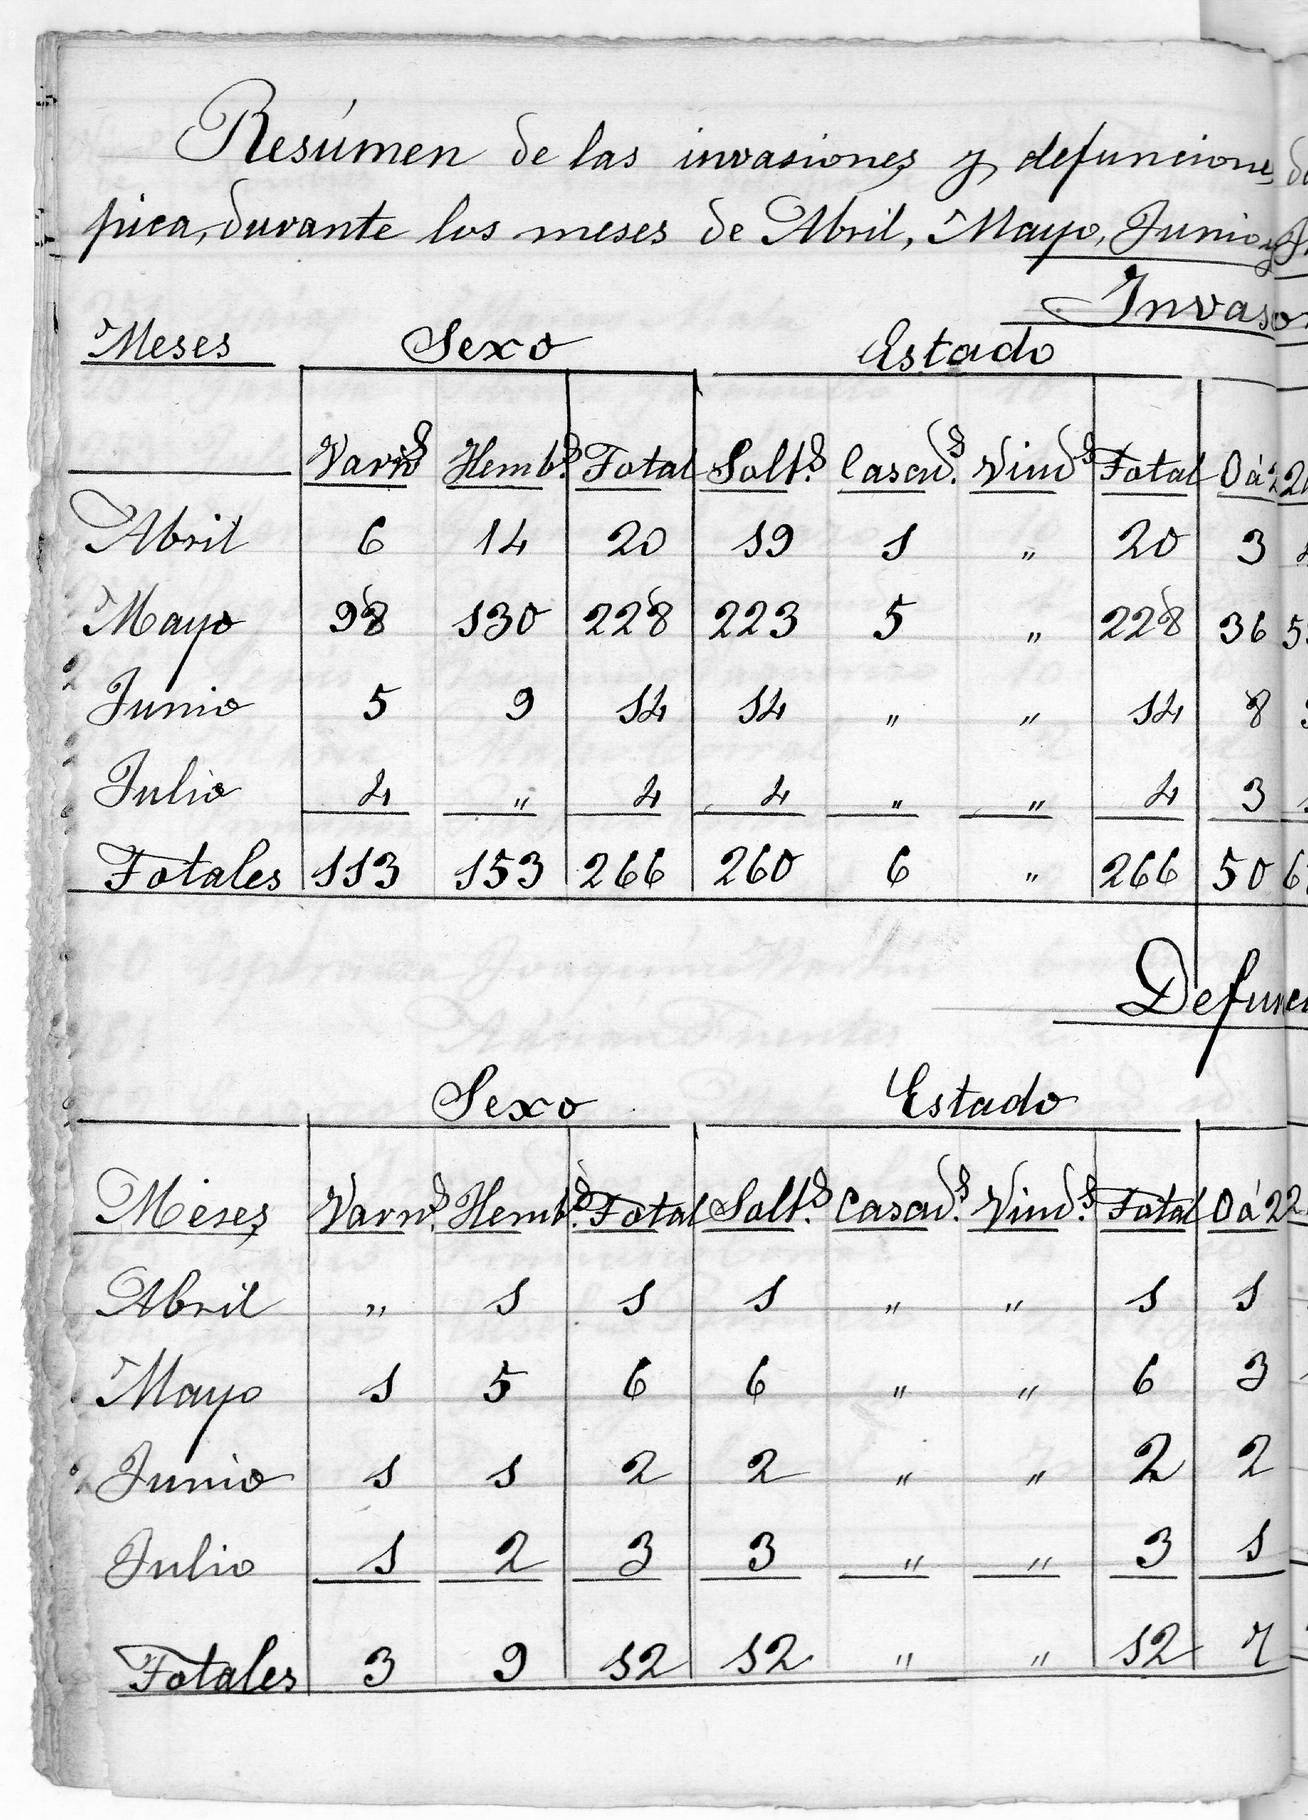 Resúmen de las invasiones y defunciones
pica, durante los meses de Abril, Mayo, Junio y
Invaso
Meses Sexo Estado
Varns Hembs. Total Solts. Casads. Viuds. Total 0 á 2
Abril 6 14 20 19 1 " 20 3
Mayo 98 130 228 223 5 " 228 36
Junio 5 9 14 14 " " 14 8
Julio 4 " 4 4 " " 4 3
Totales 113 153 266 260 6 " 266 50
Defunci
Sexo Estado
Meses Varns. Hembs. Total Solts. Casads. Viuds. Total 0 á 2
Abril " 1 1 1 " " 1 1
Mayo 1 5 6 6 " " 6 3
Junio 1 1 2 2 " " 2 2
Julio 1 2 3 3 " " 3 1
Totales 3 9 12 12 " " 12 7